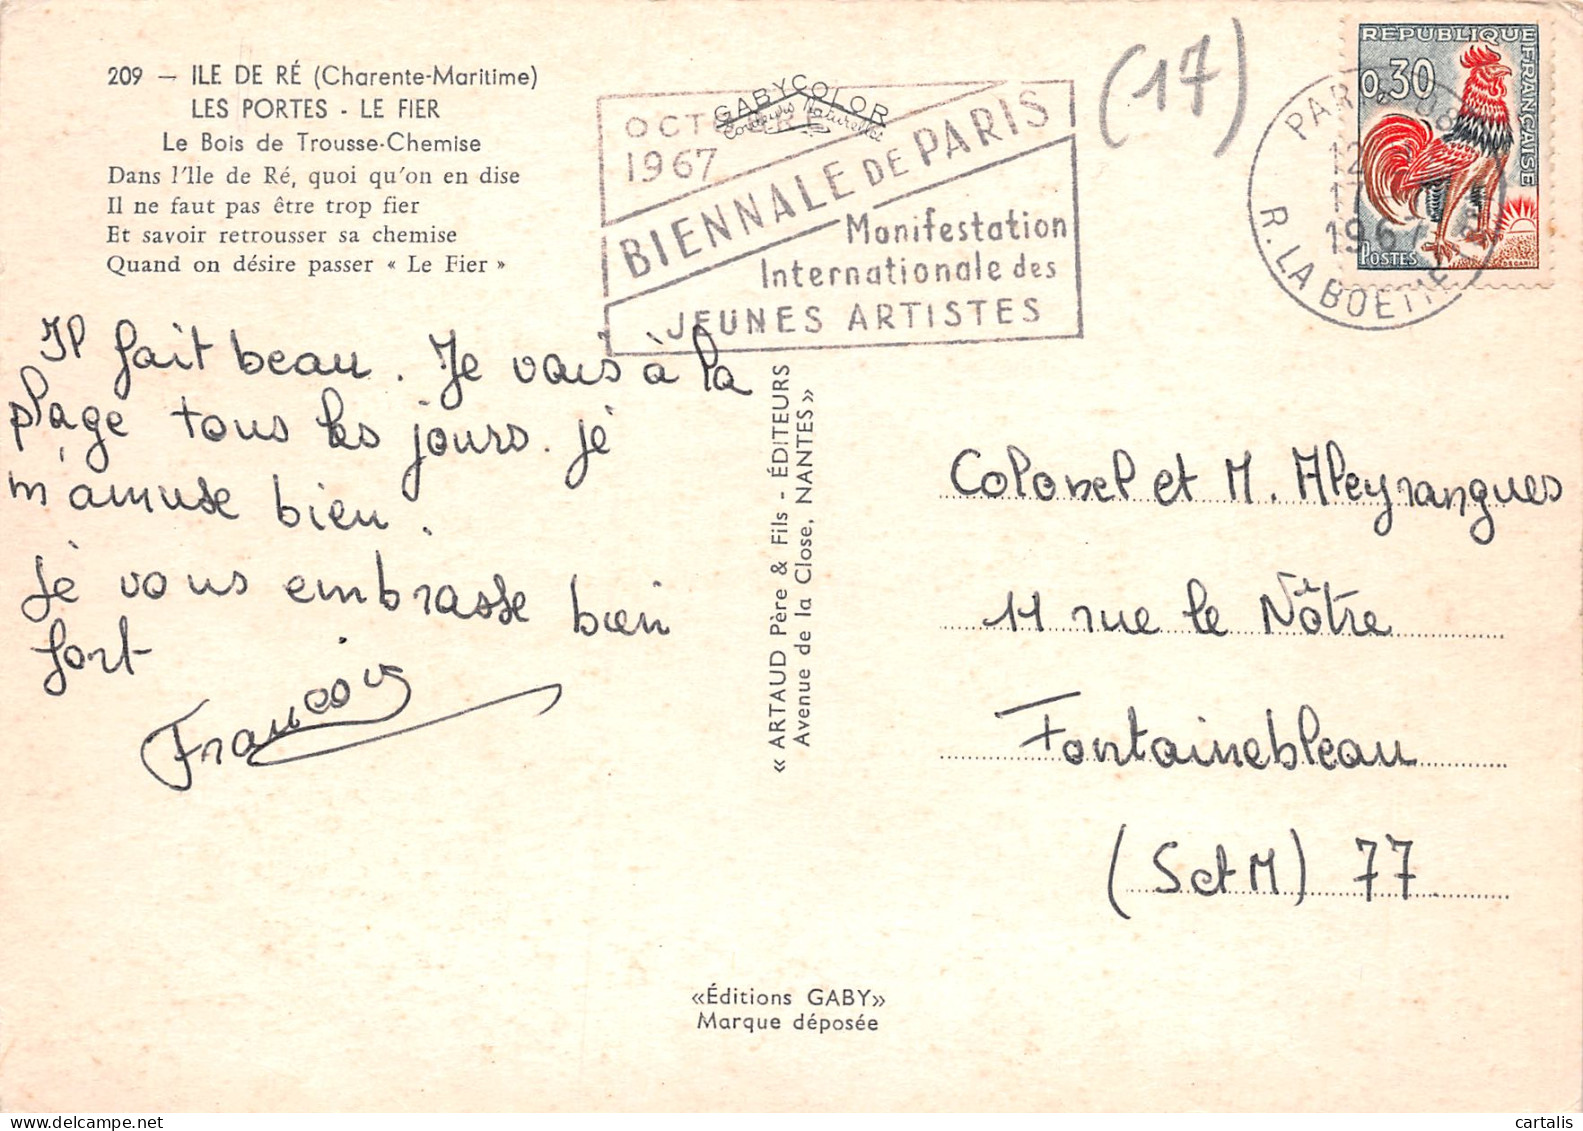 209 — ILE DE RÉ (Charente-Maritime)
LES PORTES - LE FIER
Le Bois de Trousse-Chemise
Dans l'Ile de Ré, quoi qu'on en dise
Il ne faut pas être trop fier
Et savoir retrousser sa chemise
Quand on désire passer « Le Fier »
GABYCOLOR
Couleurs Naturelles
OCTOBRE
1967
BIENNALE DE PARIS
Manifestation
Internationale des
JEUNES ARTISTES
(17)
REPUBLIQUE FRANÇAISE
0,30
POSTES
PARIS
12
17
1967
R. LA BOETIE
Il fait beau. Je vais à la
plage tous les jours. Je
m'amuse bien.
Je vous embrasse bien
fort
François
« ARTAUD Père & Fils - ÉDITEURS
Avenue de la Close, NANTES »
Colonel et M. Aleyrangues
11 rue le Nôtre
Fontainebleau
(SetM) 77
«Éditions GABY»
Marque déposée
cartalis